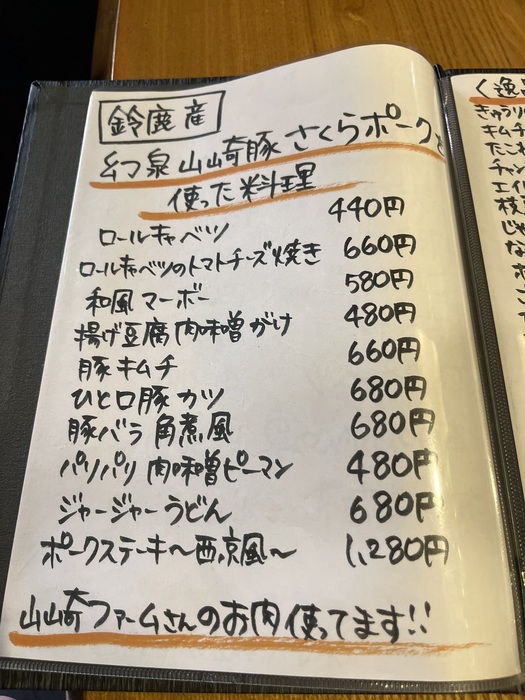 鈴鹿産
幻泉山崎豚さくらポークを
使った料理
ロールキャベツ 440円
ロールキャベツのトマトチーズ焼き 660円
和風マーボー 580円
揚げ豆腐肉味噌がけ 480円
豚キムチ 660円
ひと口豚カツ 680円
豚バラ角煮風 680円
パリパリ肉味噌ピーマン 480円
ジャージャーうどん 680円
ポークステーキ〜西京風〜 1,280円
山崎ファームさんのお肉使ってます!!
きゅうり
キムチ
たこわ
チャン
エイ
枝
じゃ
な